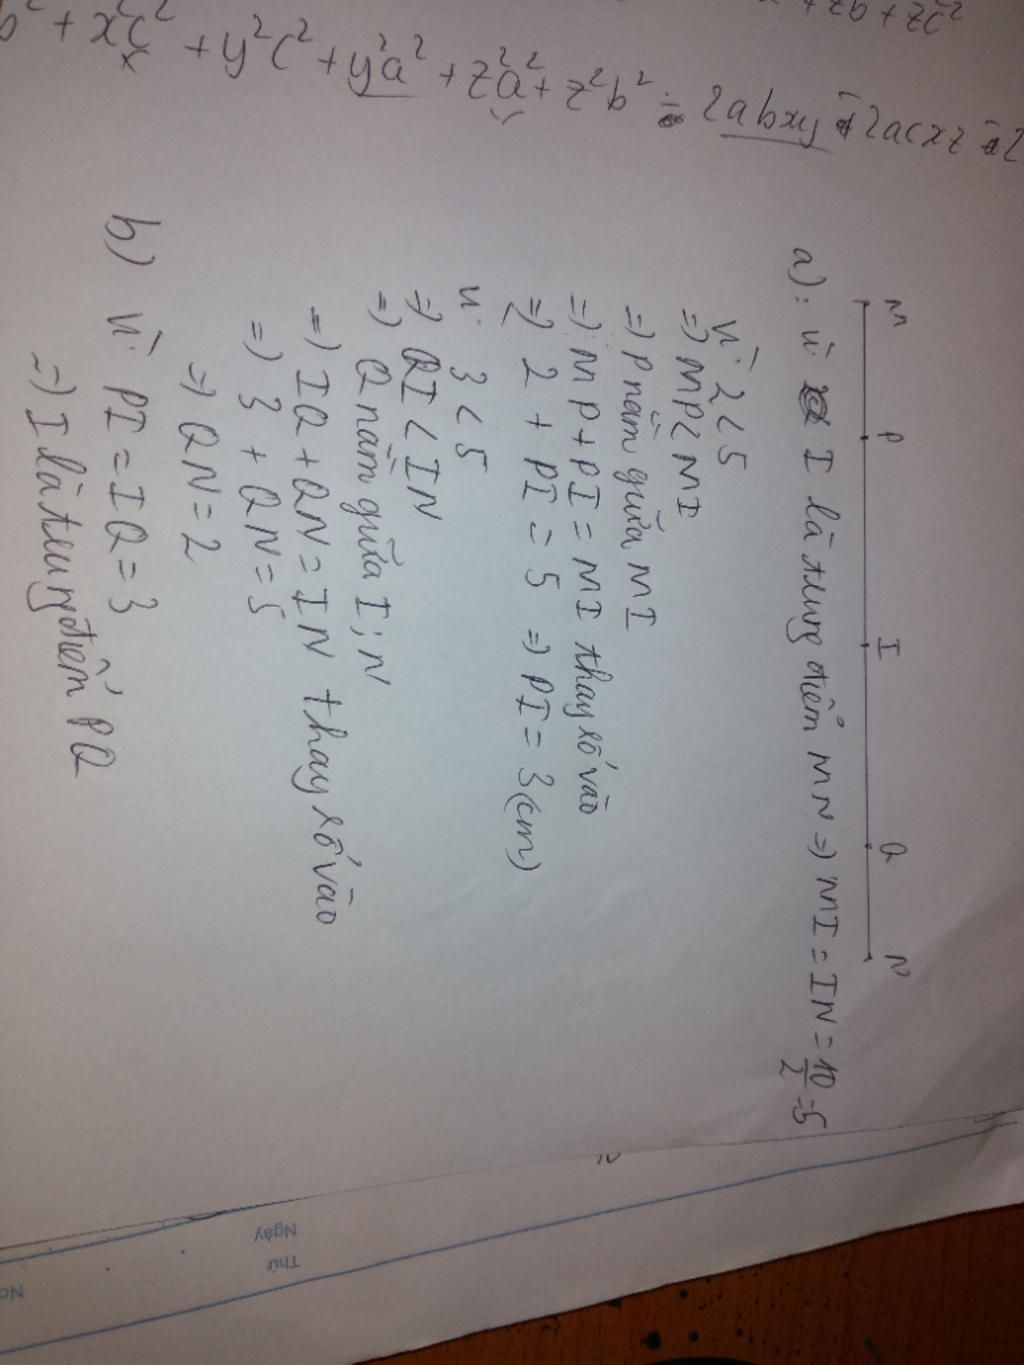 + zb + zc²
b² + xc² + y²c² + y²a² + z²a² + z²b² - 2abxy - 2acxz - 2
M P I Q N
a): Vì I là trung điểm MN => MI = IN = 10/2 = 5
Vì 2 < 5
=> MP < MI
=> P nằm giữa MI
=> MP + PI = MI thay số vào
=> 2 + PI = 5 => PI = 3 (cm)
Vì 3 < 5
=> QI < IN
=> Q nằm giữa I; N
=> IQ + QN = IN thay số vào
=> 3 + QN = 5
=> QN = 2
b) Vì PI = IQ = 3
=> I là trung điểm PQ
Thứ
Ngày
No